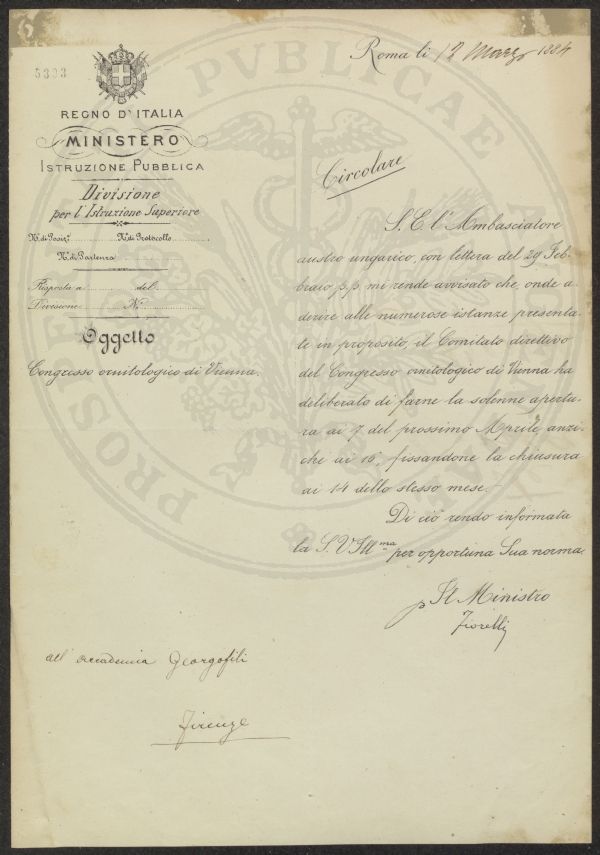 5303
Roma li 12 Marzo 1884
REGNO D'ITALIA
MINISTERO
ISTRUZIONE PUBBLICA
Divisione
per l'Istruzione Superiore
N.º di Posiz.e N.º di Protocollo
N.º di Partenza
Risposta a del
Divisione N.º
Oggetto
Congresso ornitologico di Vienna.
Circolare
S. E. l'Ambasciatore
austro ungarico, con lettera del 29 Feb-
braio p.p. mi rende avvisato che, onde a-
derire alle numerose istanze presenta-
te in proposito, il Comitato direttivo
del Congresso ornitologico di Vienna ha
deliberato di farne la solenne apertu-
ra ai 7 del prossimo Aprile, anzi-
chè ai 16, fissandone la chiusura
ai 14 dello stesso mese.
Di ciò rendo informata
la S. V. Ill.ma per opportuna Sua norma.
p Il Ministro
Fiorelli
all' Accademia Georgofili
Firenze
PROSPE
PVBLICAE